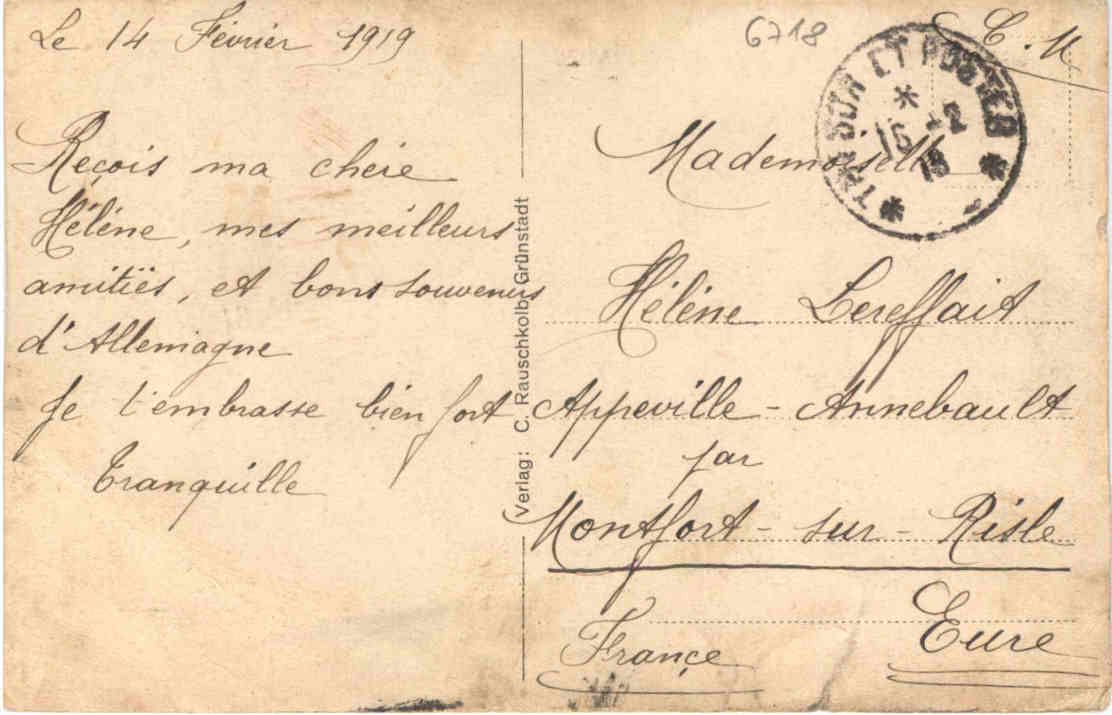 Le 14 Février 1919
Reçois ma chère
Hélène, mes meilleurs
amitiés, et bons souvenirs
d'Allemagne
Je t'embrasse bien fort
Tranquille
Verlag: C. Rauschkolb, Grünstadt
6718
F. M
TRESOR ET POSTES
* 15 -2 19 *
Mademoiselle
Hélène Lereffait
Appeville - Annebault
par
Montfort - sur - Risle
Eure
France